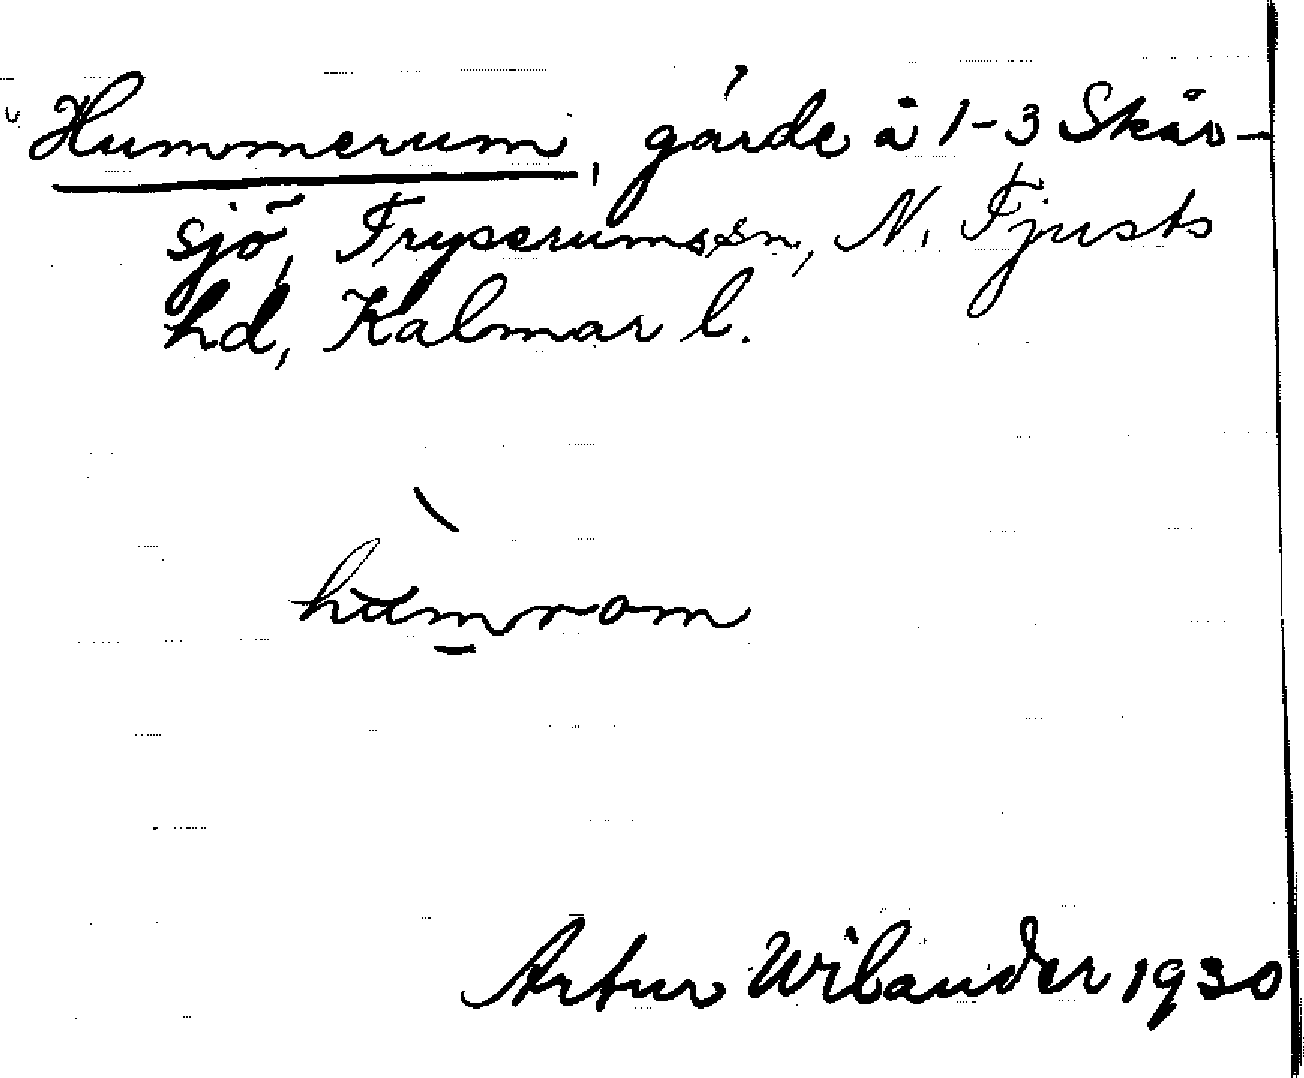 Hummerum, gärde å 1-3 Skår-
sjö, Tryserums sn, N. Tjusts
hd, Kalmar l.
hùmrom
Artur Wilander 1930